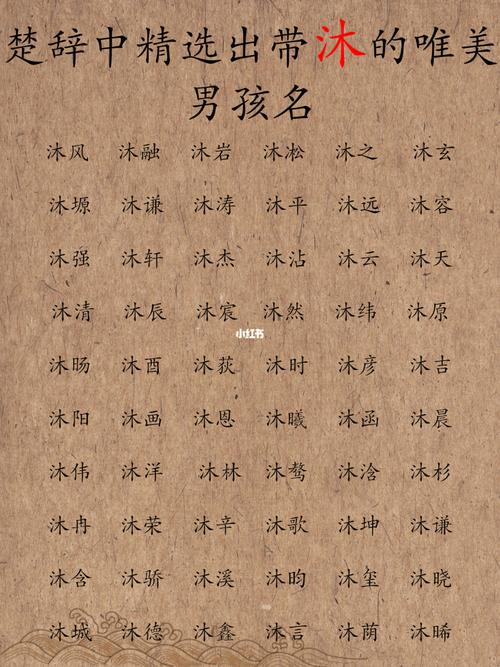 楚辞中精选出带沐的唯美
男孩名
沐风 沐融 沐岩 沐淞 沐之 沐玄
沐塬 沐谦 沐涛 沐平 沐远 沐容
沐强 沐轩 沐杰 沐沾 沐云 沐天
沐清 沐辰 沐宸 沐然 沐纬 沐原
小红书
沐旸 沐酉 沐荻 沐时 沐彦 沐吉
沐阳 沐画 沐恩 沐曦 沐函 沐晨
沐伟 沐洋 沐林 沐骜 沐浛 沐杉
沐冉 沐荣 沐辛 沐歌 沐坤 沐谦
沐含 沐骄 沐溪 沐昀 沐玺 沐晓
沐城 沐德 沐鑫 沐言 沐荫 沐晞